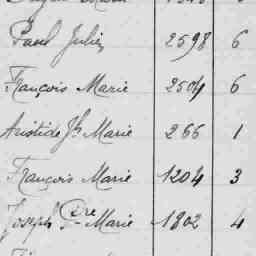 Paul Julien 2598 6
François Marie 2504 6
Aristide Jh Marie 266 1
François Marie 1204 3
Joseph Marie 1802 4